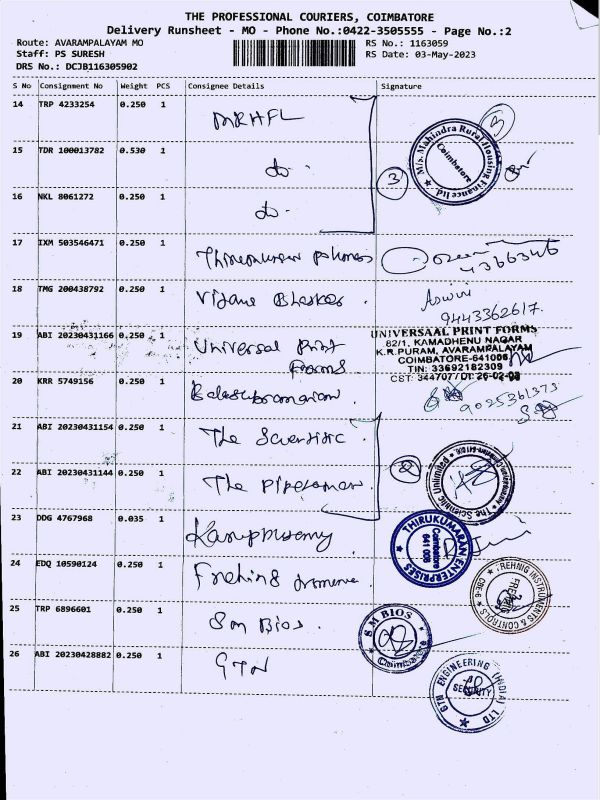 THE PROFESSIONAL COURIERS, COIMBATORE
Delivery Runsheet - MO - Phone No.:0422-3505555 - Page No.:2
Route: AVARAMPALAYAM MO
RS No.: 1163059
Staff: PS SURESH
RS Date: 03-May-2023
DRS No.: DCJB116305902
S No Consignment No Weight PCS Consignee Details Signature
14 TRP 4233254 0.250 1 MRHFL
M/s. Mahindra Rural Housing Finance ltd
Coimbatore
3
3
15 TDR 100013782 0.530 1 do.
16 NKL 8061272 0.250 1 do.
17 IXM 503546471 0.250 1 phones
18 TMG 200438792 0.250 1 Vijaya Bhaskar.
Aswini
9443362617.
19 ABI 20230431166 0.250 1 Universal Print Forms
UNIVERSAAL PRINT FORMS
82/1, KAMADHENU NAGAR
K.R.PURAM, AVARAMPALAYAM
COIMBATORE-641006.
TIN: 33692182309
CST: 344707/Dt: 26-02-03
20 KRR 5749156 0.250 1 Balasubramaniam.
9025361373
21 ABI 20230431154 0.250 1 The Scientific
22 ABI 20230431144 0.250 1 The
2
The Scientific Unlimited
23 DDG 4767968 0.035 1 Karuppusamy
THIRUKUMARAN ENTERPRISES
Coimbatore
641 006
24 EDQ 10590124 0.250 1
TREHNIG INSTRUMENTS & CONTROLS
CBE-6
25 TRP 6896601 0.250 1 Sm Bios.
S M BIOS
Coimbatore
26 ABI 20230428882 0.250 1 GTN
GTN ENGINEERING (INDIA) LTD
SECURITY